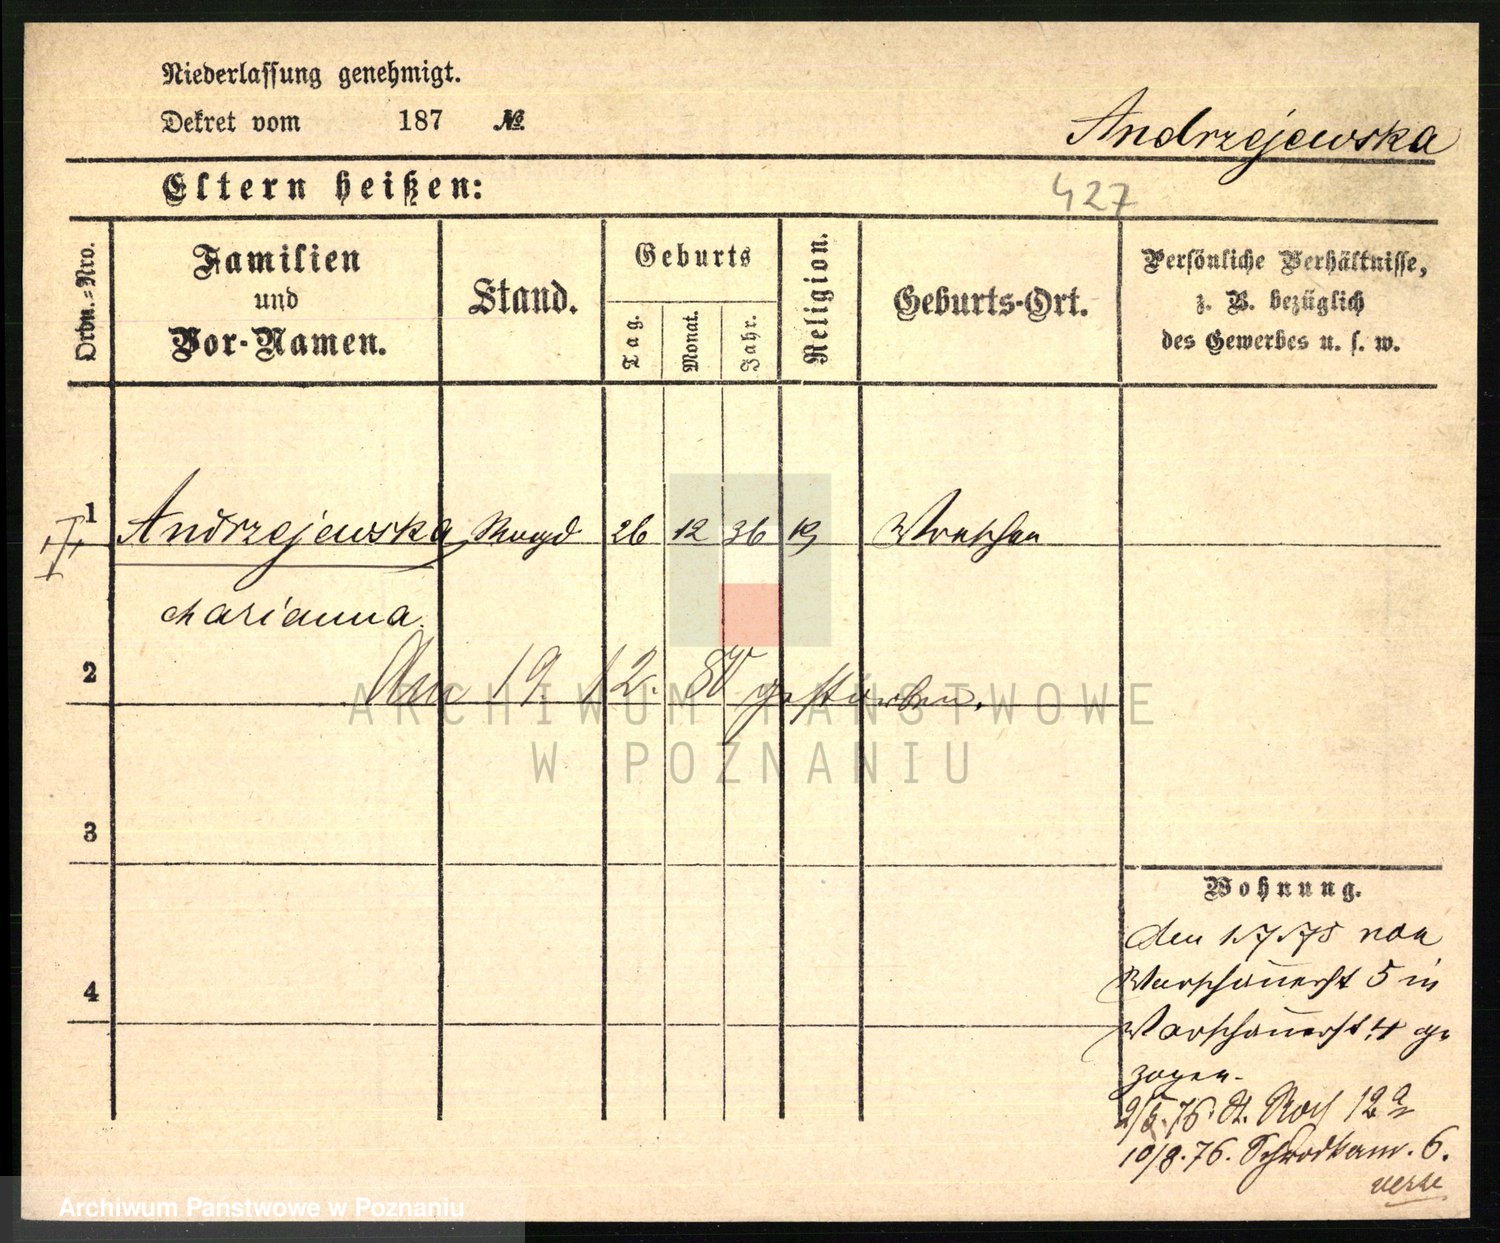 Niederlassung genehmigt.
Dekret vom 187 №
Andrzejewska
Eltern heißen:
427
Ordn.=Nro.
Familien
und
Vor-Namen.
Stand.
Geburts
Tag.
Monat.
Jahr.
Religion.
Geburts-Ort.
Persönliche Verhältnisse,
z. B. bezüglich
des Gewerbes u. s. w.
1 Andrzejewska Magd 26 12 36 Wreschen
Marianna.
2
Am 19. 12. gestorben.
ARCHIWUM PAŃSTWOWE
W POZNANIU
3
Wohnung.
den 1.7.75 von
Warschauerst 5 in
4
Warschauerst. 4 ge
zogen.
2/5.76. St. Roch 12a
10/8.76. Schrodkam. 6.
verte
Archiwum Państwowe w Poznaniu